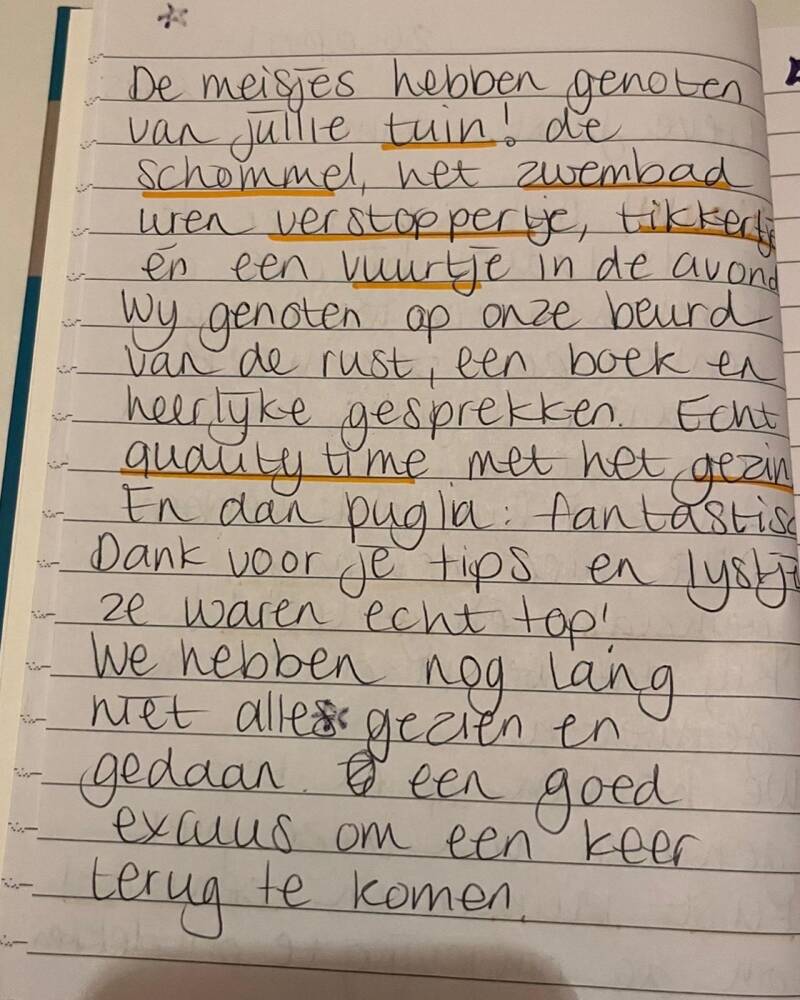 De meisjes hebben genoten
van jullie tuin! de
schommel, het zwembad
uren verstoppertje, tikkertje
én een vuurtje in de avond
Wy genoten op onze beurd
van de rust, een boek en
heerlyke gesprekken. Echt
quality time met het gezin
En dan puglia: fantastisc
Dank voor je tips en lystje
ze waren echt top!
We hebben nog lang
niet alles gezien en
gedaan. een goed
excuus om een keer
terug te komen.